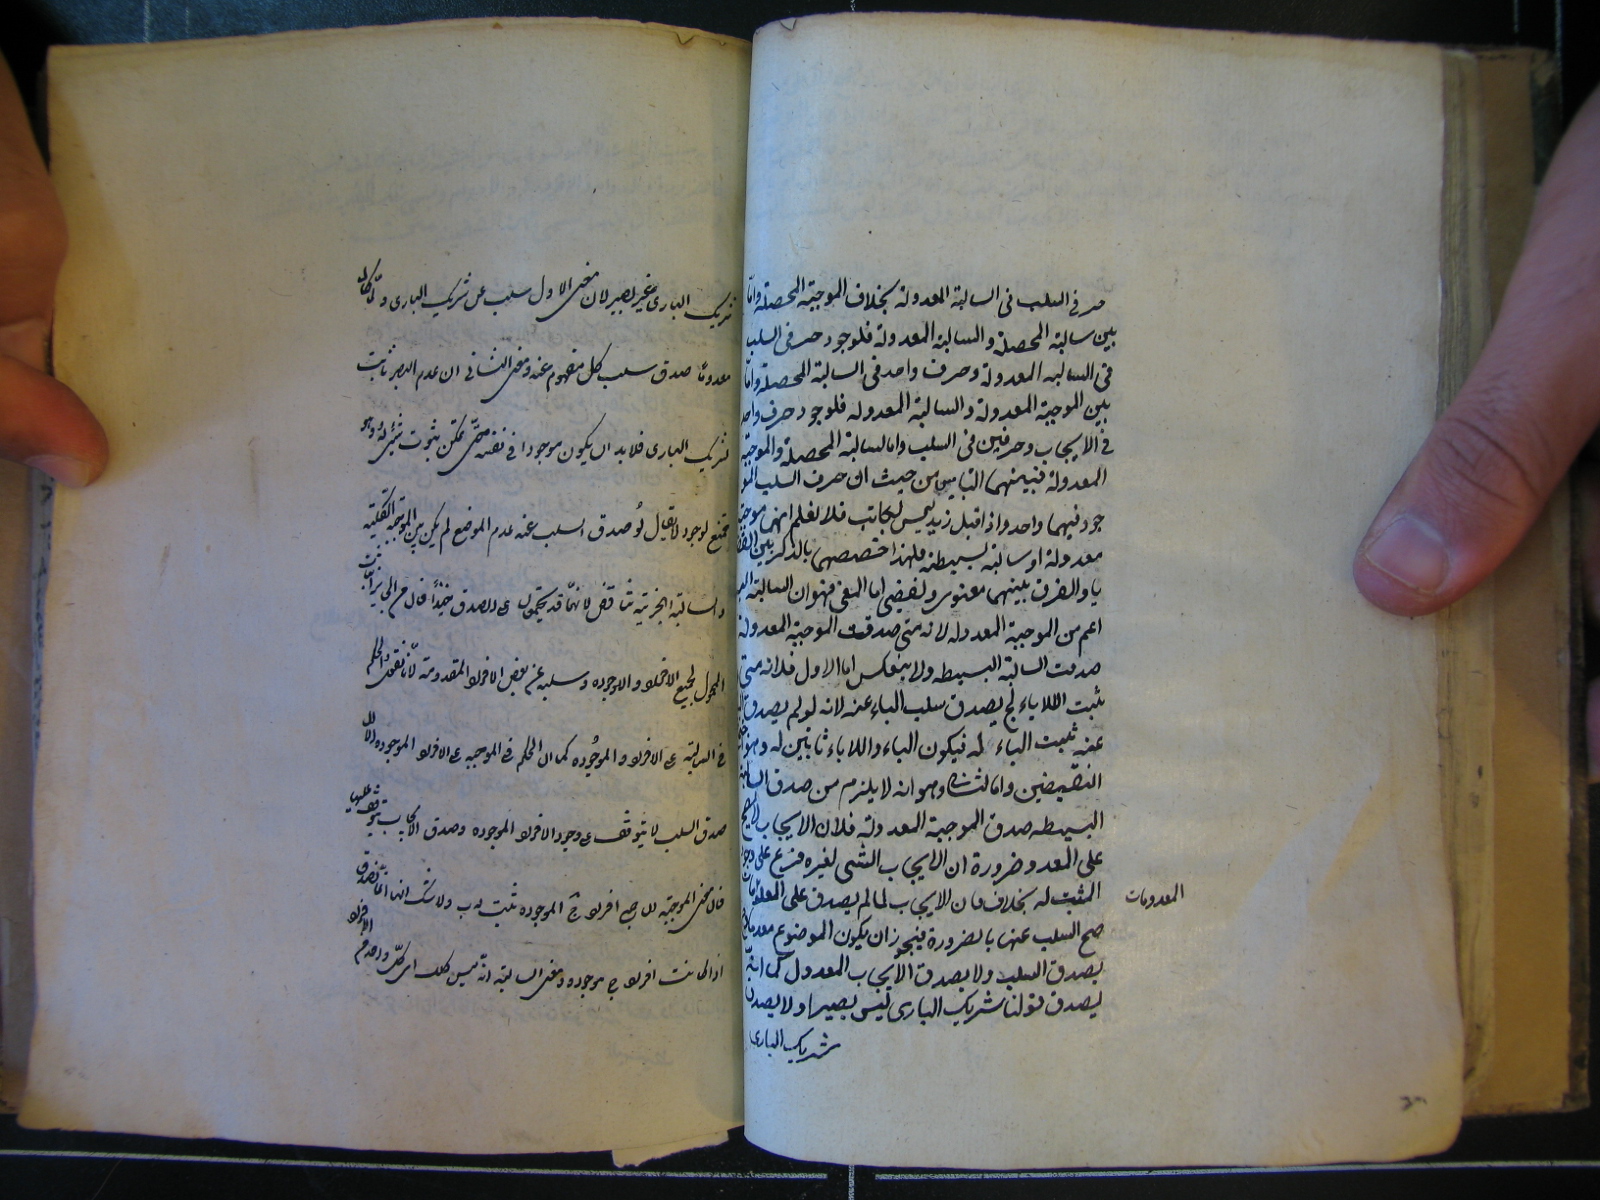 حرفي السلب في السالبة المعدولة بخلاف الموجبة المحصلة واما
بين سالبة المحصلة والسالبة المعدولة فلوجود حرفي السلب
في السالبه المعدولة وحرف واحد في السالبة المحصلة واما
بين الموجبة المعدولة والسالبة المعدولة فلوجود حرف واحد
في الايجاب وحرفين في السلب واما السالبة المحصلة والموجبة
المعدولة فبينهما التباس من حيث ان حرف السلب المو
جود فيهما واحد واذا قيل زيد ليس بكاتب فلا يعلم انها موجبة
معدولة او سالبة بسيطة فلهذا خصصهما بالذكر بين القضا
يا والفرق بينهما معنوى ولفظي اما المعنى فهو ان السالبة
اعم من الموجبة المعدولة لانه متى صدقت الموجبة المعدولة
صدقت السالبة البسيطه ولا ينعكس اما الاول فلانه متى
ثبت اللاباء لج يصدق سلب الباء عنه لانه لو لم يصدق
عنه ثبت الباء له فيكون الباء واللاباء ثابتين له وهو
النقيضين واما الثاني وهو انه لا يلزم من صدق السالبة
البسيطه صدق الموجبة المعدولة فلان الايجاب لا يصح
على المعدوم ضرورة ان الايجاب الشئ لغيره فرع على وجود
المثبت له بخلاف فان الايجاب لما لم يصدق على المعدومات
المعدومات
صح السلب عنها بالضرورة فيجوز ان يكون الموضوع معدوما
يصدق السلب ولا يصدق الايجاب المعدول كما انه
يصدق قولنا شريك البارى ليس ببصير ولا يصدق
شريك البارى
شريك البارى غير بصير لان معنى الاول سلب عن شريك البارى ولما كان
معدوما صدق سلب كل مفهوم عنه ومعنى الثاني ان عدم البصر ثابت
لشريك البارى فلابد ان يكون موجودا في نفسه حتى يمكن ثبوت شئ له وهو
ممتنع الوجود لا يقال لو صدق السلب عند عدم الموضع لم يكن بين الموجبه الكلية
والسالبة الجزئية تناقض لانهما قد يجتمعان على الصدق حينئذ فان من الجائز اثبات
المحمول لجميع الافراد الموجوده وسلبه عن بعض الافراد المعدومة لانا نقول الحكم
في السالبة على الافراد الموجوده كما ان الحكم في الموجبه على الافراد الموجوده الا ان
صدق السلب لا يتوقف على وجود الافراد الموجوده وصدق الايجاب يتوقف عليها
فان معنى الموجبه ان جميع افراد ج الموجوده ثبت له ب ولا شك انها انما تصدق
اذا كانت افراد ج موجوده ومعنى السالبة انه ليس كذلك اى كل واحد من الافراد